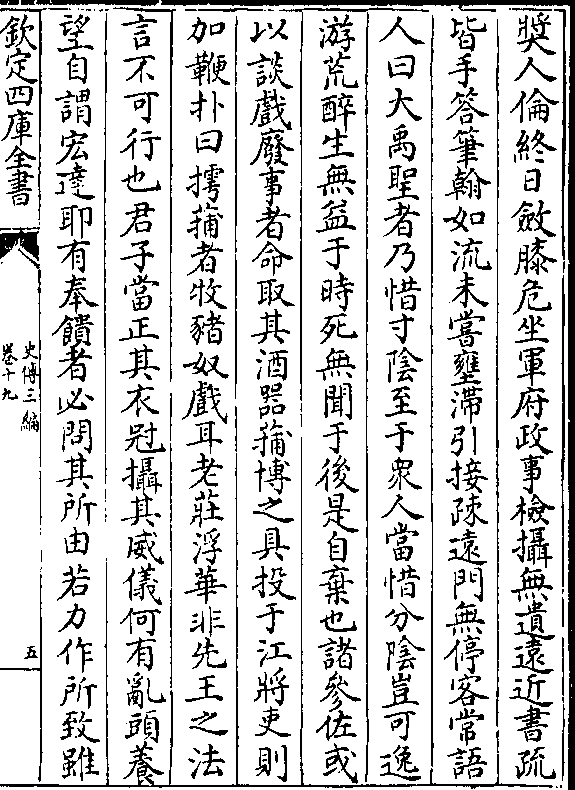 奬人倫終日斂膝危坐軍府政事檢攝無遺遠近書疏
皆手答筆翰如流未嘗壅滯引接疎遠門無停客常語
人曰大禹聖者乃惜寸陰至于衆人當惜分陰豈可逸
游荒醉生無益于時死無聞于後是自棄也諸參佐或
以談戲廢事者命取其酒器蒱博之具投于江將吏則
加鞭扑曰摴蒱者牧豬奴戲耳老莊浮華非先王之法
言不可行也君子當正其衣冠攝其威儀何有亂頭養
望自謂宏達耶有奉饋者必問其所由若力作所致雖
欽定四庫全書
史傳三編
卷十九
五